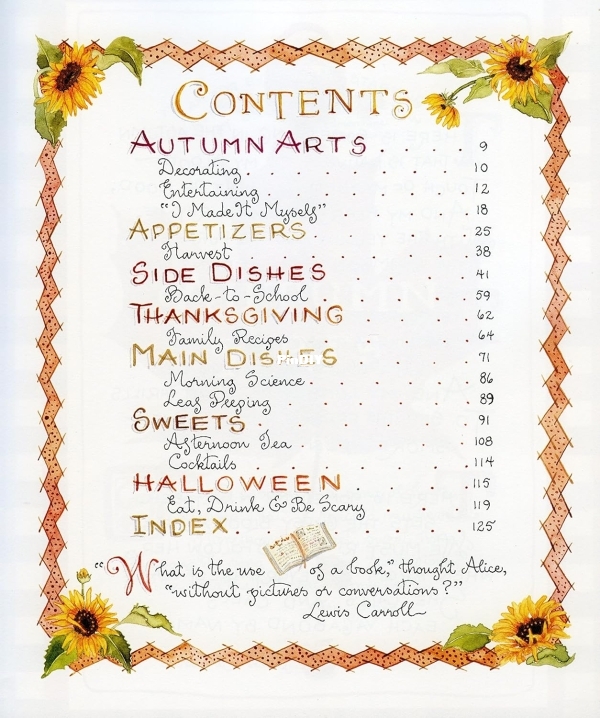 CONTENTS
AUTUMN ARTS . . . . . 9
Decorating . . . . . . . . 10
Entertaining . . . . . . . 12
"I Made It Myself" . . . . . 18
APPETIZERS . . . . . . 25
Harvest . . . . . . . . 38
SIDE DISHES . . . . . 41
Back-to-School . . . . . 59
THANKSGIVING . . . . . 62
Family Recipes . . . . . 64
MAIN DISHES . . . . . 71
Morning Science . . . . . . 86
Leaf Peeping . . . . . . 89
SWEETS . . . . . . . 91
Afternoon Tea . . . . . . 108
Cocktails . . . . . . . 114
HALLOWEEN . . . . . 115
Eat, Drink & Be Scary . . . . 119
INDEX . . . . . . . 125
"What is the use of a book," thought Alice,
"without pictures or conversations?"
Lewis Carroll